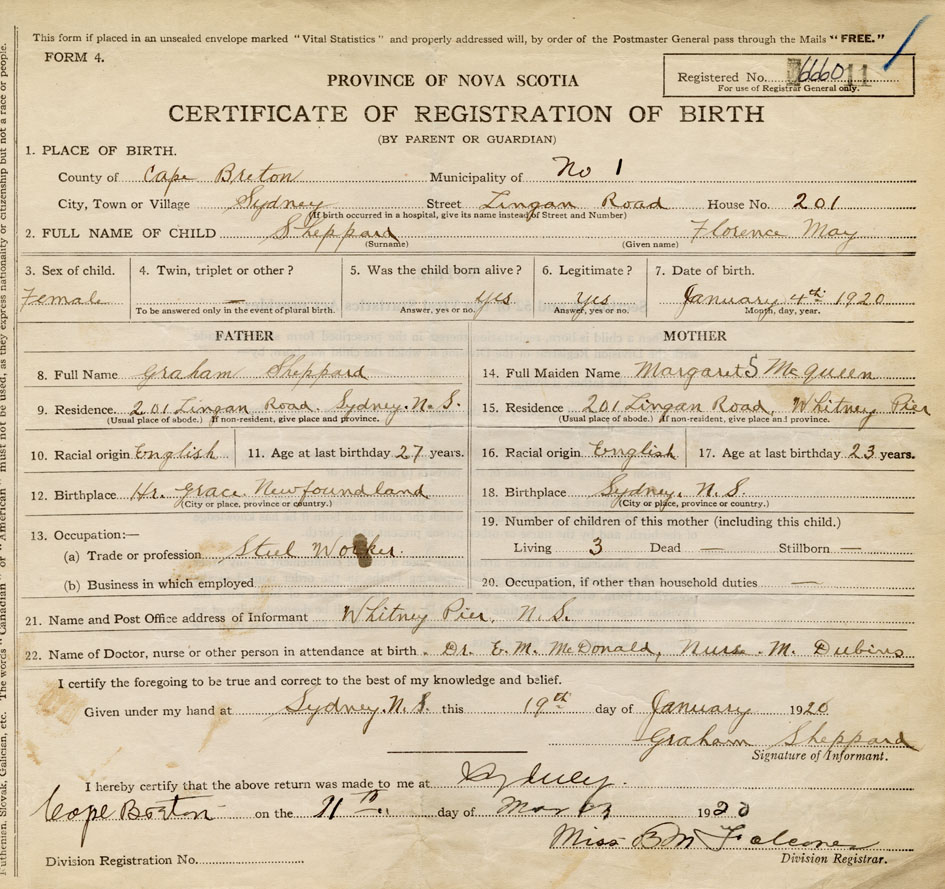 This form if placed in an unsealed envelope marked "Vital Statistics" and properly addressed will, by order of the Postmaster General pass through the Mails "FREE."
FORM 4.
PROVINCE OF NOVA SCOTIA
Registered No. 6660
For use of Registrar General only.
CERTIFICATE OF REGISTRATION OF BIRTH
(BY PARENT OR GUARDIAN)
1. PLACE OF BIRTH.
County of Cape Breton Municipality of No 1
City, Town or Village Sydney Street Lingan Road House No. 201
(If birth occurred in a hospital, give its name instead of Street and Number)
2. FULL NAME OF CHILD Sheppard Florence May
(Surname) (Given name)
3. Sex of child. 4. Twin, triplet or other? 5. Was the child born alive? 6. Legitimate? 7. Date of birth.
Female — yes yes January 4th 1920
To be answered only in the event of plural birth. Answer, yes or no. Answer, yes or no. Month, day, year.
FATHER
8. Full Name Graham Sheppard
9. Residence 201 Lingan Road. Sydney. N. S.
(Usual place of abode.) If non-resident, give place and province.
10. Racial origin English 11. Age at last birthday 27 years.
12. Birthplace Hr. Grace. Newfoundland
(City or place, province or country.)
13. Occupation:—
(a) Trade or profession Steel Worker.
(b) Business in which employed
MOTHER
14. Full Maiden Name Margaret S McQueen
15. Residence 201 Lingan Road, Whitney Pier
(Usual place of abode.) If non-resident, give place and province.
16. Racial origin English 17. Age at last birthday 23 years.
18. Birthplace Sydney. N. S.
(City or place, province or country.)
19. Number of children of this mother (including this child.)
Living 3 Dead — Stillborn —
20. Occupation, if other than household duties —
21. Name and Post Office address of Informant Whitney Pier, N. S.
22. Name of Doctor, nurse or other person in attendance at birth. Dr. E. M. McDonald, Nurse. M.
I certify the foregoing to be true and correct to the best of my knowledge and belief.
Given under my hand at Sydney. N. S. this 19th day of January 1920
Graham Sheppard
Signature of Informant.
I hereby certify that the above return was made to me at Sydney.
Cape Breton on the 11th day of March 1920
Miss B M
Division Registration No. Division Registrar.
Slovak, Galician, etc. The words "Canadian" or "American" must not be used, as they express nationality or citizenship but not a race or people.